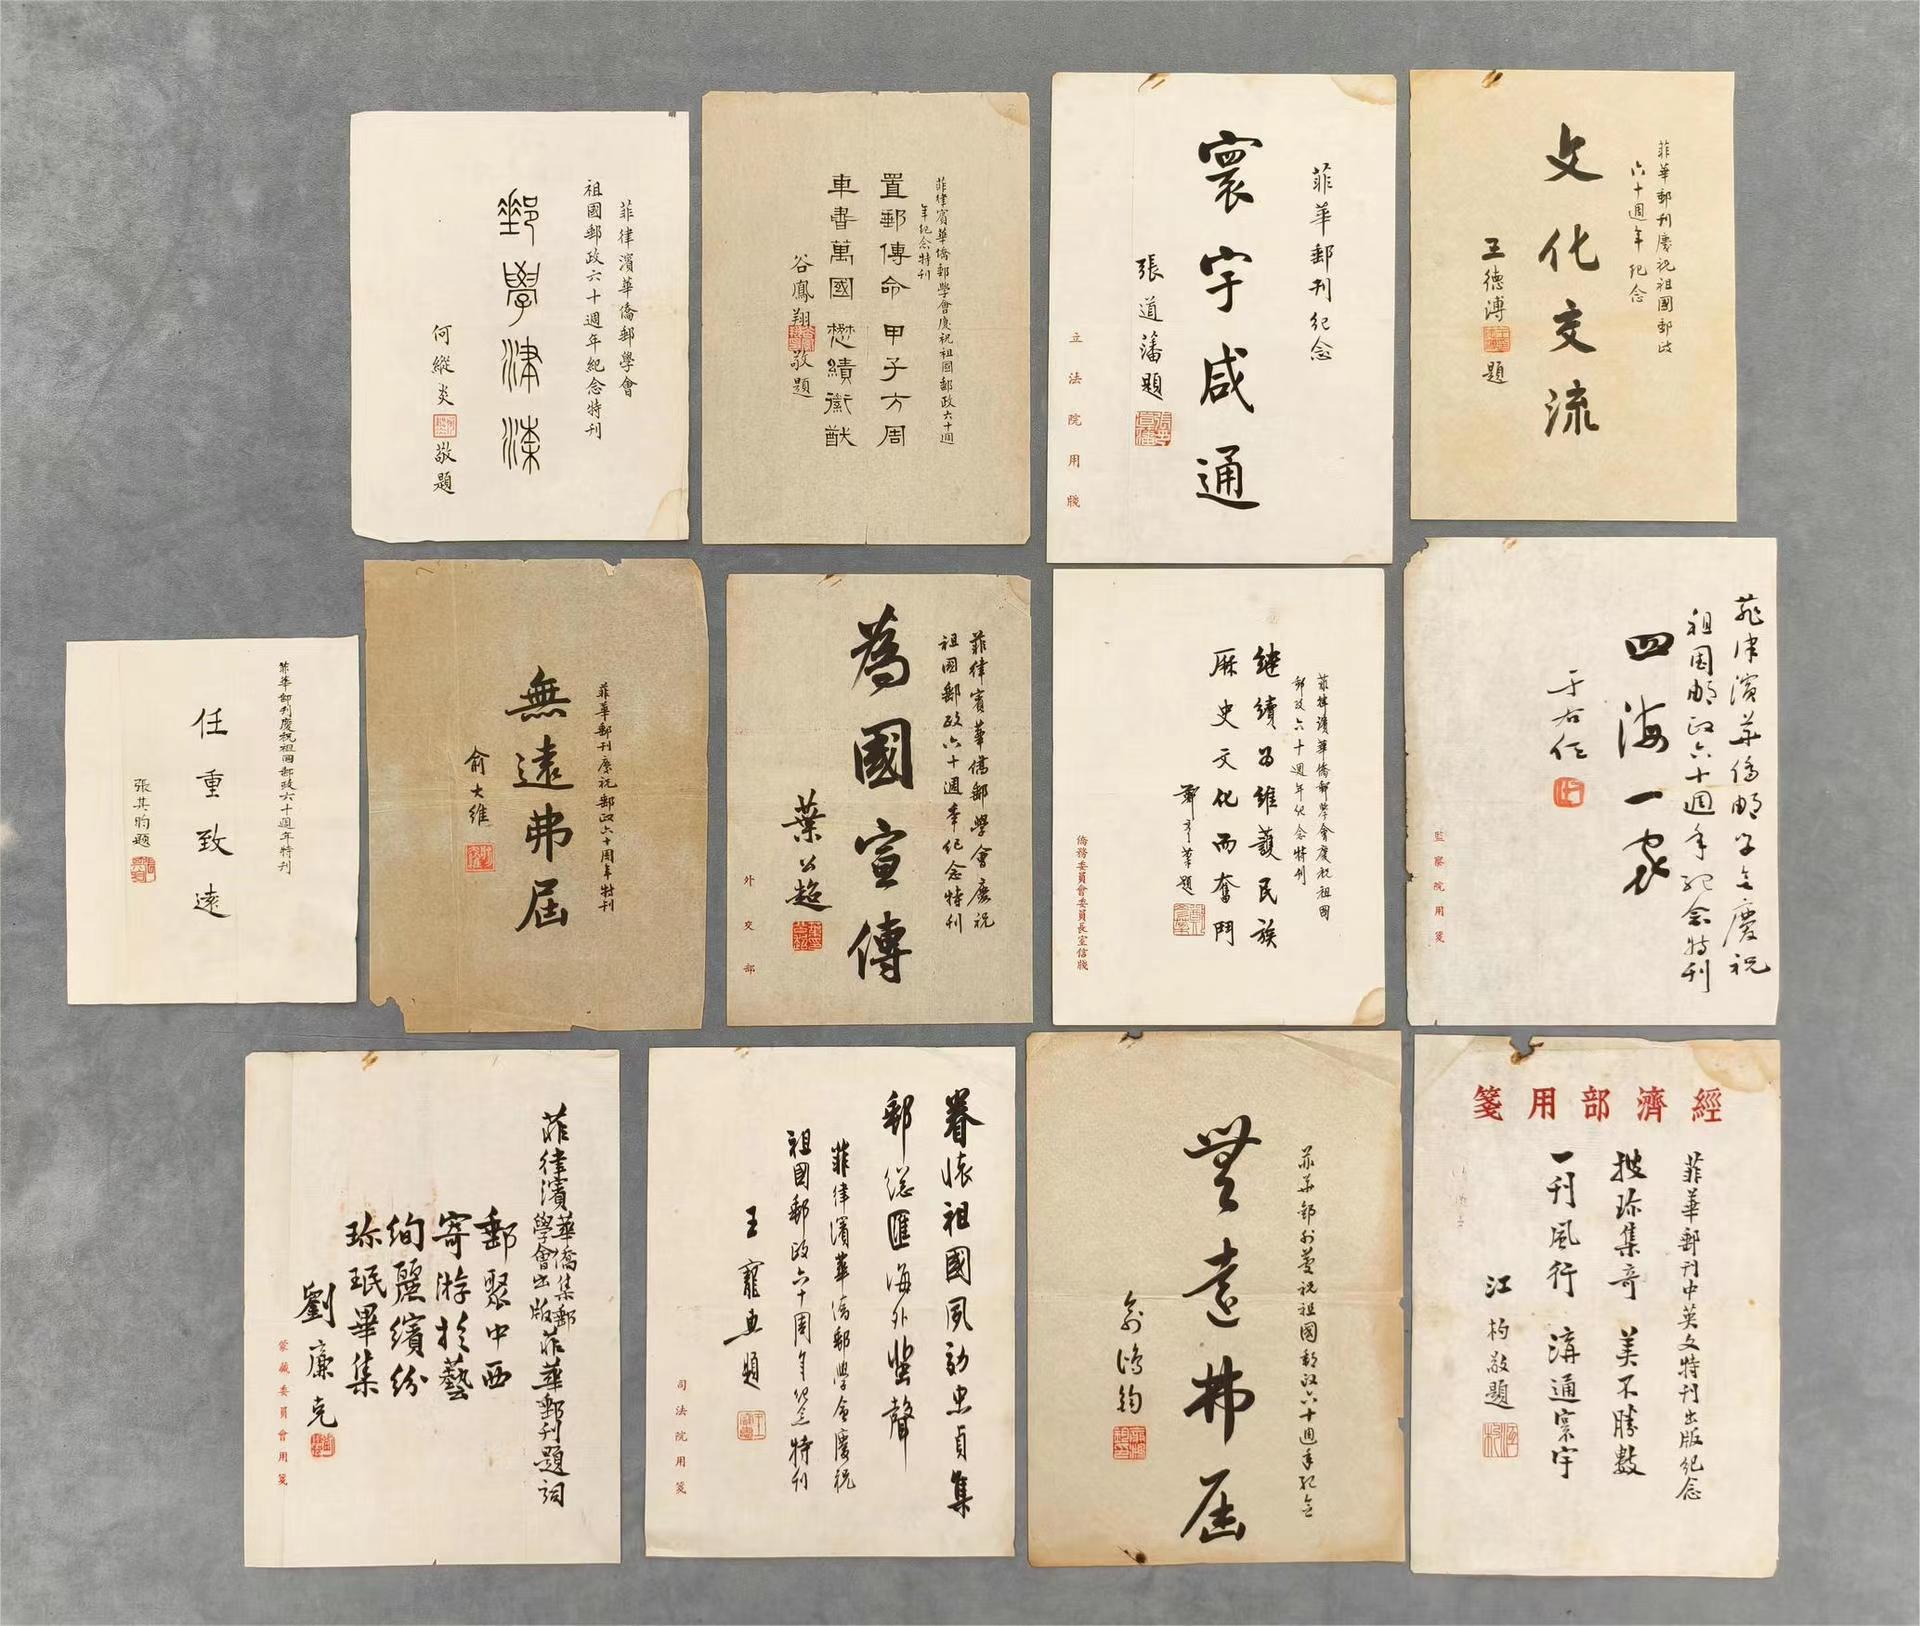 菲律濱華僑郵學會
祖國郵政六十週年紀念特刊
郵學津梁
何縱炎
敬題
菲律賓華僑郵學會慶祝祖國郵政六十週
年紀念特刊
置郵傳命 甲子方周
車書萬國 懋績徽猷
谷鳳翔
敬題
菲華郵刊紀念
寰宇咸通
張道藩題
立法院用牋
菲華郵刊慶祝祖國郵政
六十週年紀念
文化交流
王德溥
題
菲華郵刊慶祝祖國郵政六十週年特刊
任重致遠
張其昀題
菲華郵刊慶祝郵政六十周年特刊
無遠弗屆
俞大維
菲律賓華僑郵學會慶祝
祖國郵政六十週年紀念特刊
為國宣傳
葉公超
外交部
菲律濱華僑郵學會慶祝祖國
郵政六十週年紀念特刊
继續為維護民族
歷史文化而奮鬥
鄭彥棻題
僑務委員會委員長室信牋
菲律濱華僑郵學會慶祝
祖国郵政六十週年紀念特刊
四海一家
于右任
監察院用箋
菲律濱華僑集郵
學會出版菲華郵刊題詞
郵聚中西
寄游於藝
絢麗繽紛
珎珉畢集
劉廉克
蒙藏委員會用箋
眷懷祖國夙効忠貞集
郵總匯海外蜚聲
菲律濱華僑郵學會慶祝
祖國郵政六十周年紀念特刊
王寵惠題
司法院用箋
菲華郵刊慶祝祖國郵政六十週年紀念
無遠弗屆
俞鴻鈞
經濟部用箋
菲華郵刊中英文特刊出版紀念
披珎集奇 美不勝數
一刊風行 溝通寰宇
江杓敬題